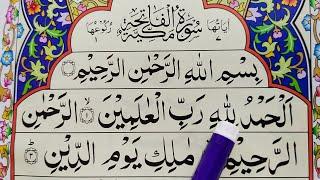 اٰيَاتُهَا ٧ سُوْرَةُ الْفَاتِحَةِ مَكِّيَّةٌ رُكُوْعُهَا ١
بِسْمِ اللّٰهِ الرَّحْمٰنِ الرَّحِيْمِ
اَلْحَمْدُ لِلّٰهِ رَبِّ الْعٰلَمِيْنَ ۙ﴿۱﴾ الرَّحْمٰنِ
الرَّحِيْمِ مٰلِكِ يَوْمِ الدِّيْنِ ؕ﴿۳﴾